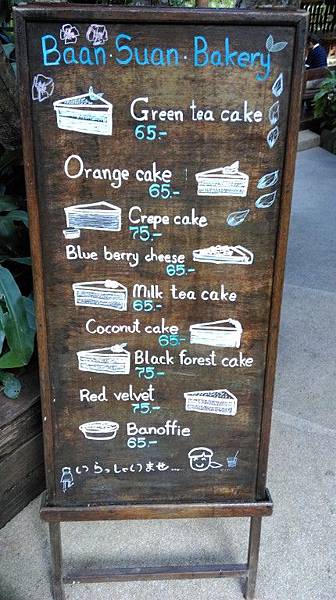 Baan·Suan·Bakery
Green tea cake
65.-
Orange cake
65.-
Crepe cake
75.-
Blue berry cheese
65.-
Milk tea cake
65.-
Coconut cake
65.-
Black forest cake
75.-
Red velvet
75.-
Banoffie
65.-
いらっしゃいませ...